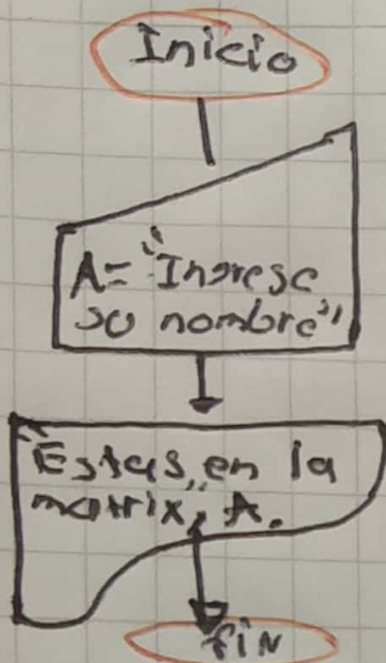 Inicio
A= "Ingrese
su nombre"
"Estas en la
matrix", A.
fin